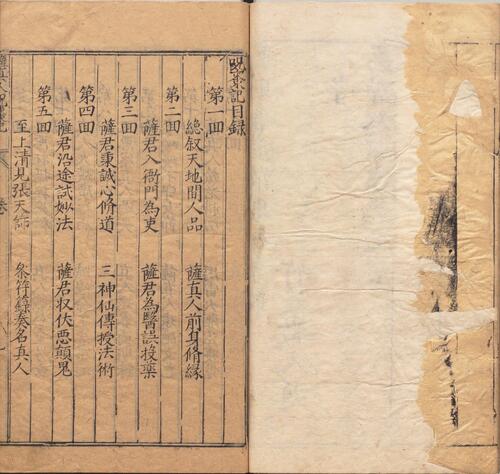 呪棗記目録
第一回
總叙天地間人品　薩真人前身脩緣
第二回
薩君入衙門為吏　薩君為醫誤投藥
第三回
薩君秉誠心脩道　三神仙傳授法術
第四回
薩君沿途試妙法　薩君収伏惡顛鬼
第五回
至上清見張天師　參符籙奏名真人